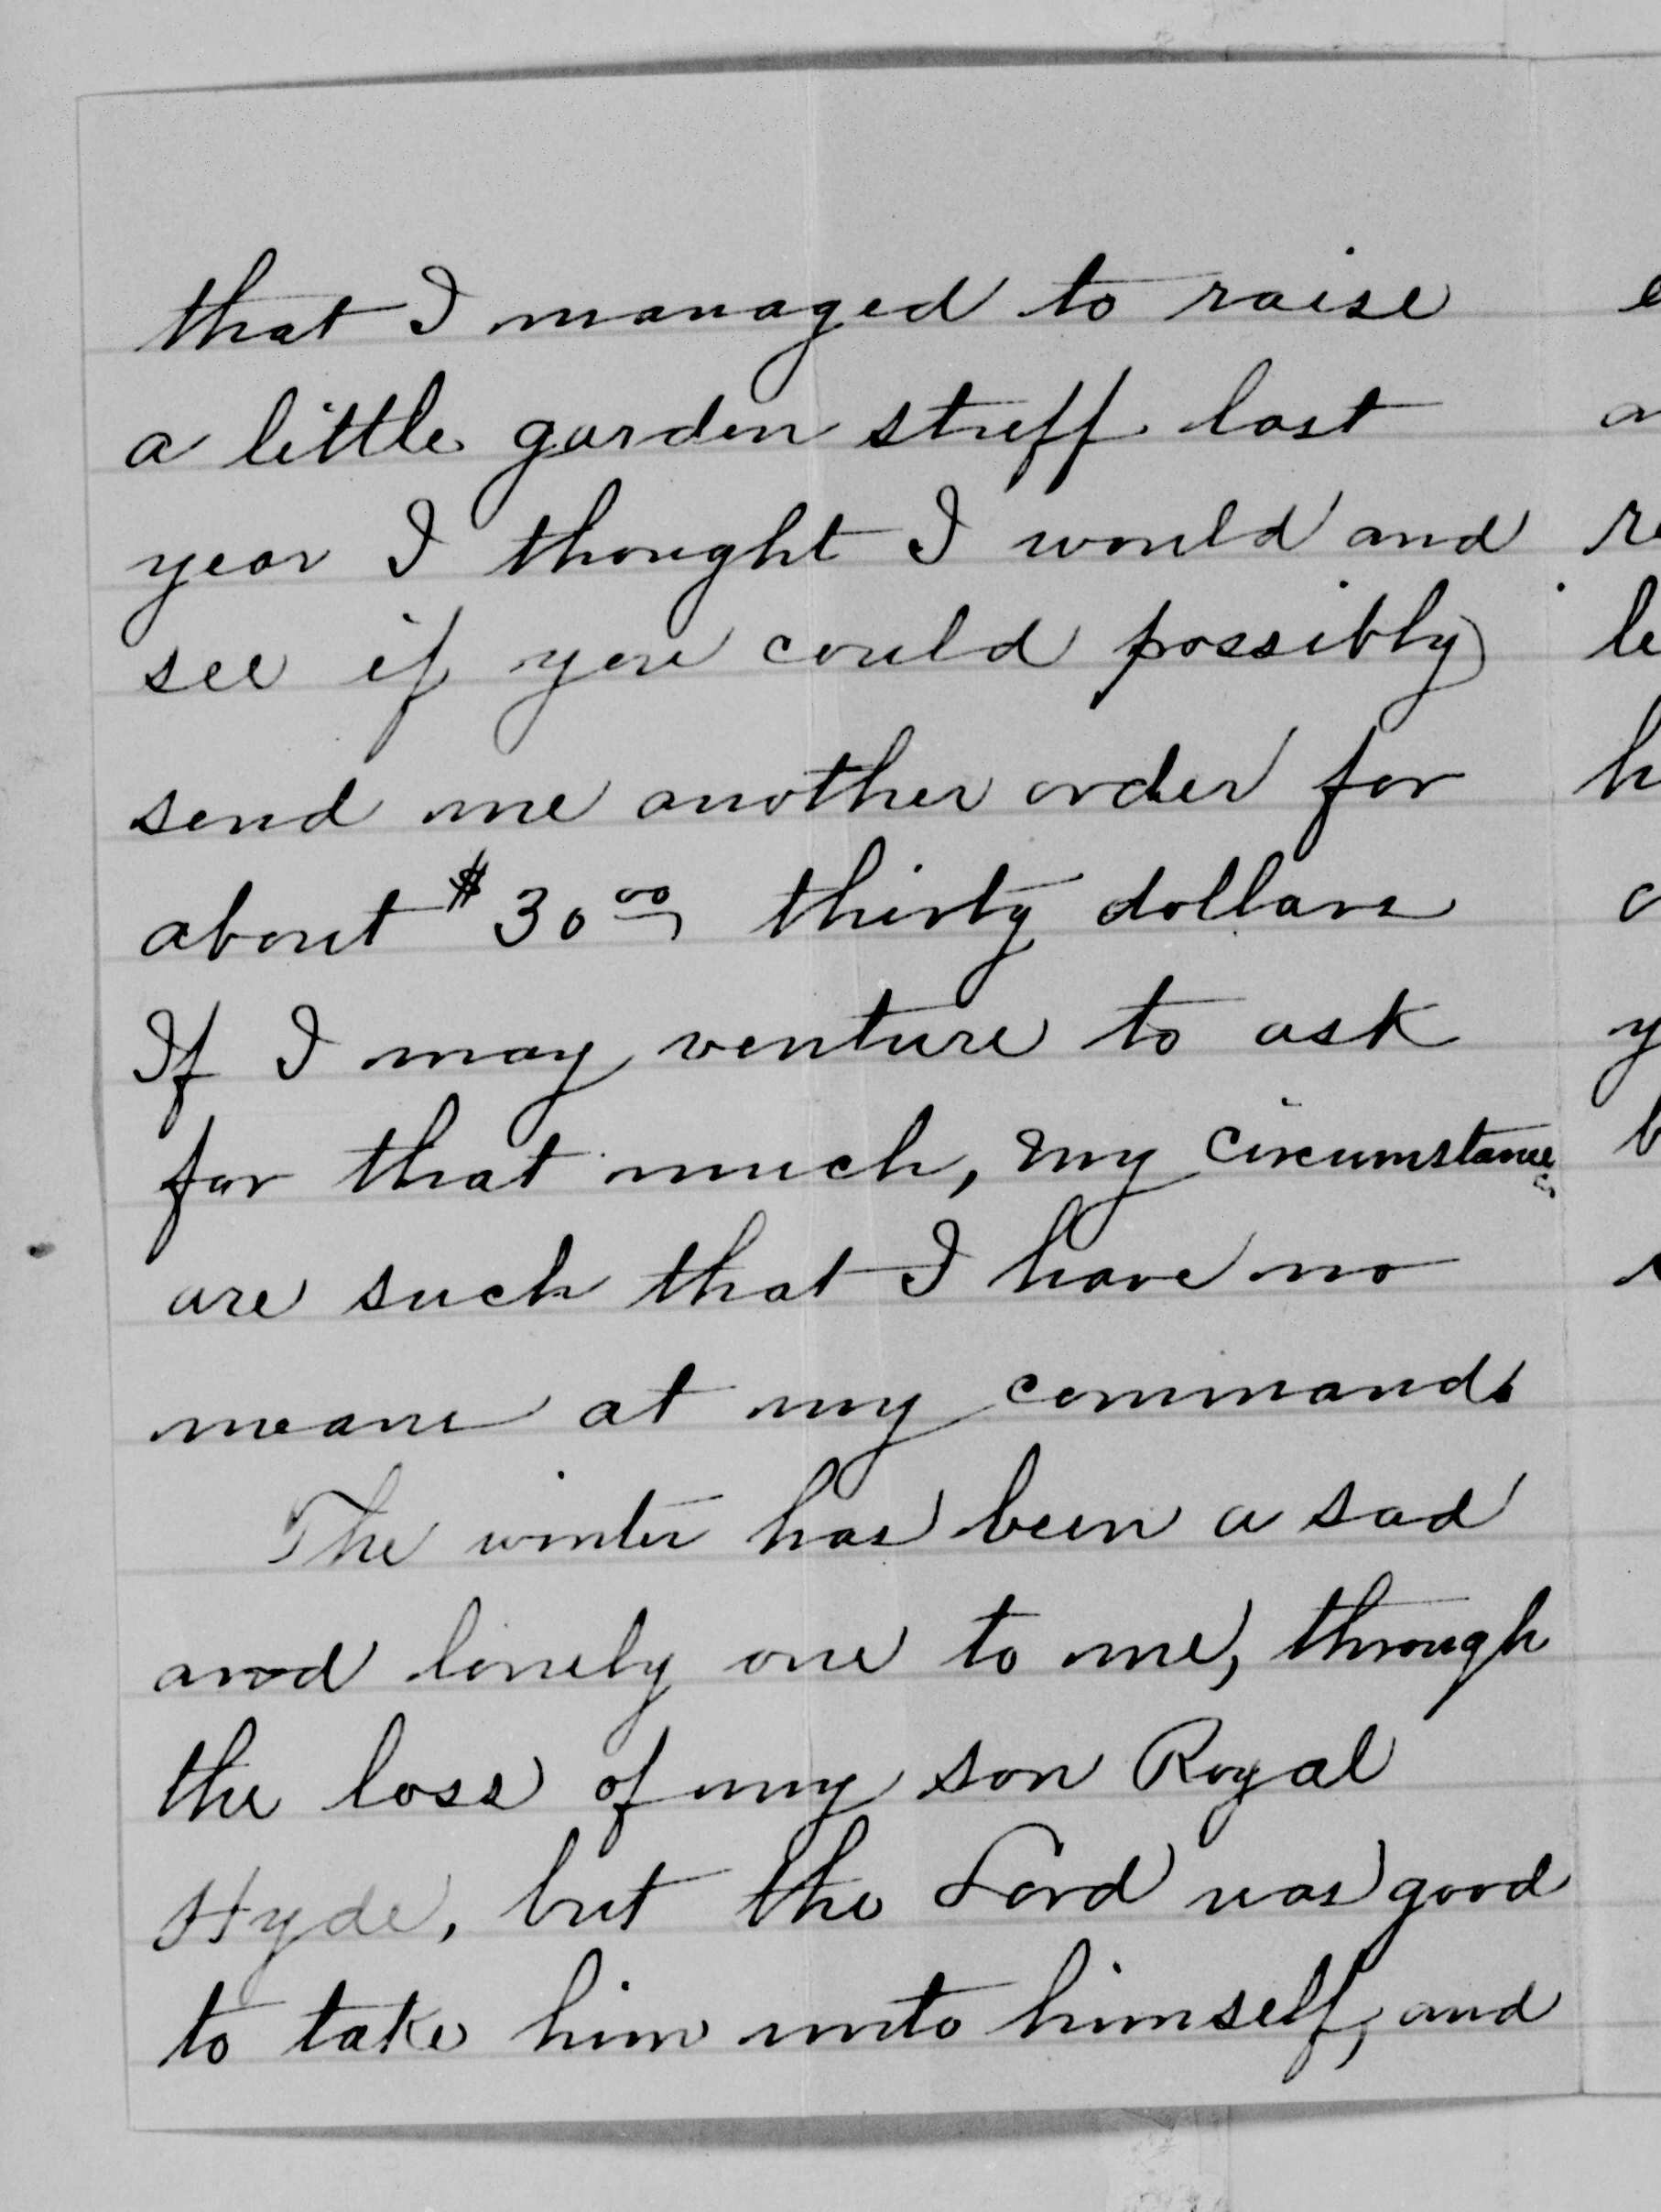 that I managed to raise
a little garden stuff last
year I thought I would and
see if you could possibly
send me another order for
about $30.00 thirty dollars
If I may venture to ask
for that much, my circumstances
are such that I have no
means at my command.
The winter has been a sad
and lonely one to me, through
the loss of my son Royal
Hyde, but the Lord was good
to take him unto himself, and